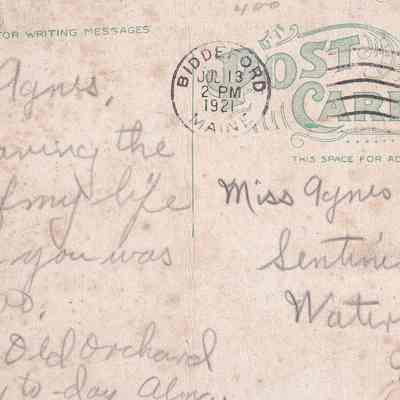 400
FOR WRITING MESSAGES
BIDDEFORD
JUL 13
2 PM
1921
MAINE
POST
CARD
THIS SPACE FOR AD
Agnes,
aving the
of my life
you was
Old Orchard
to-day Along
Miss Agnes
Sentine
Water